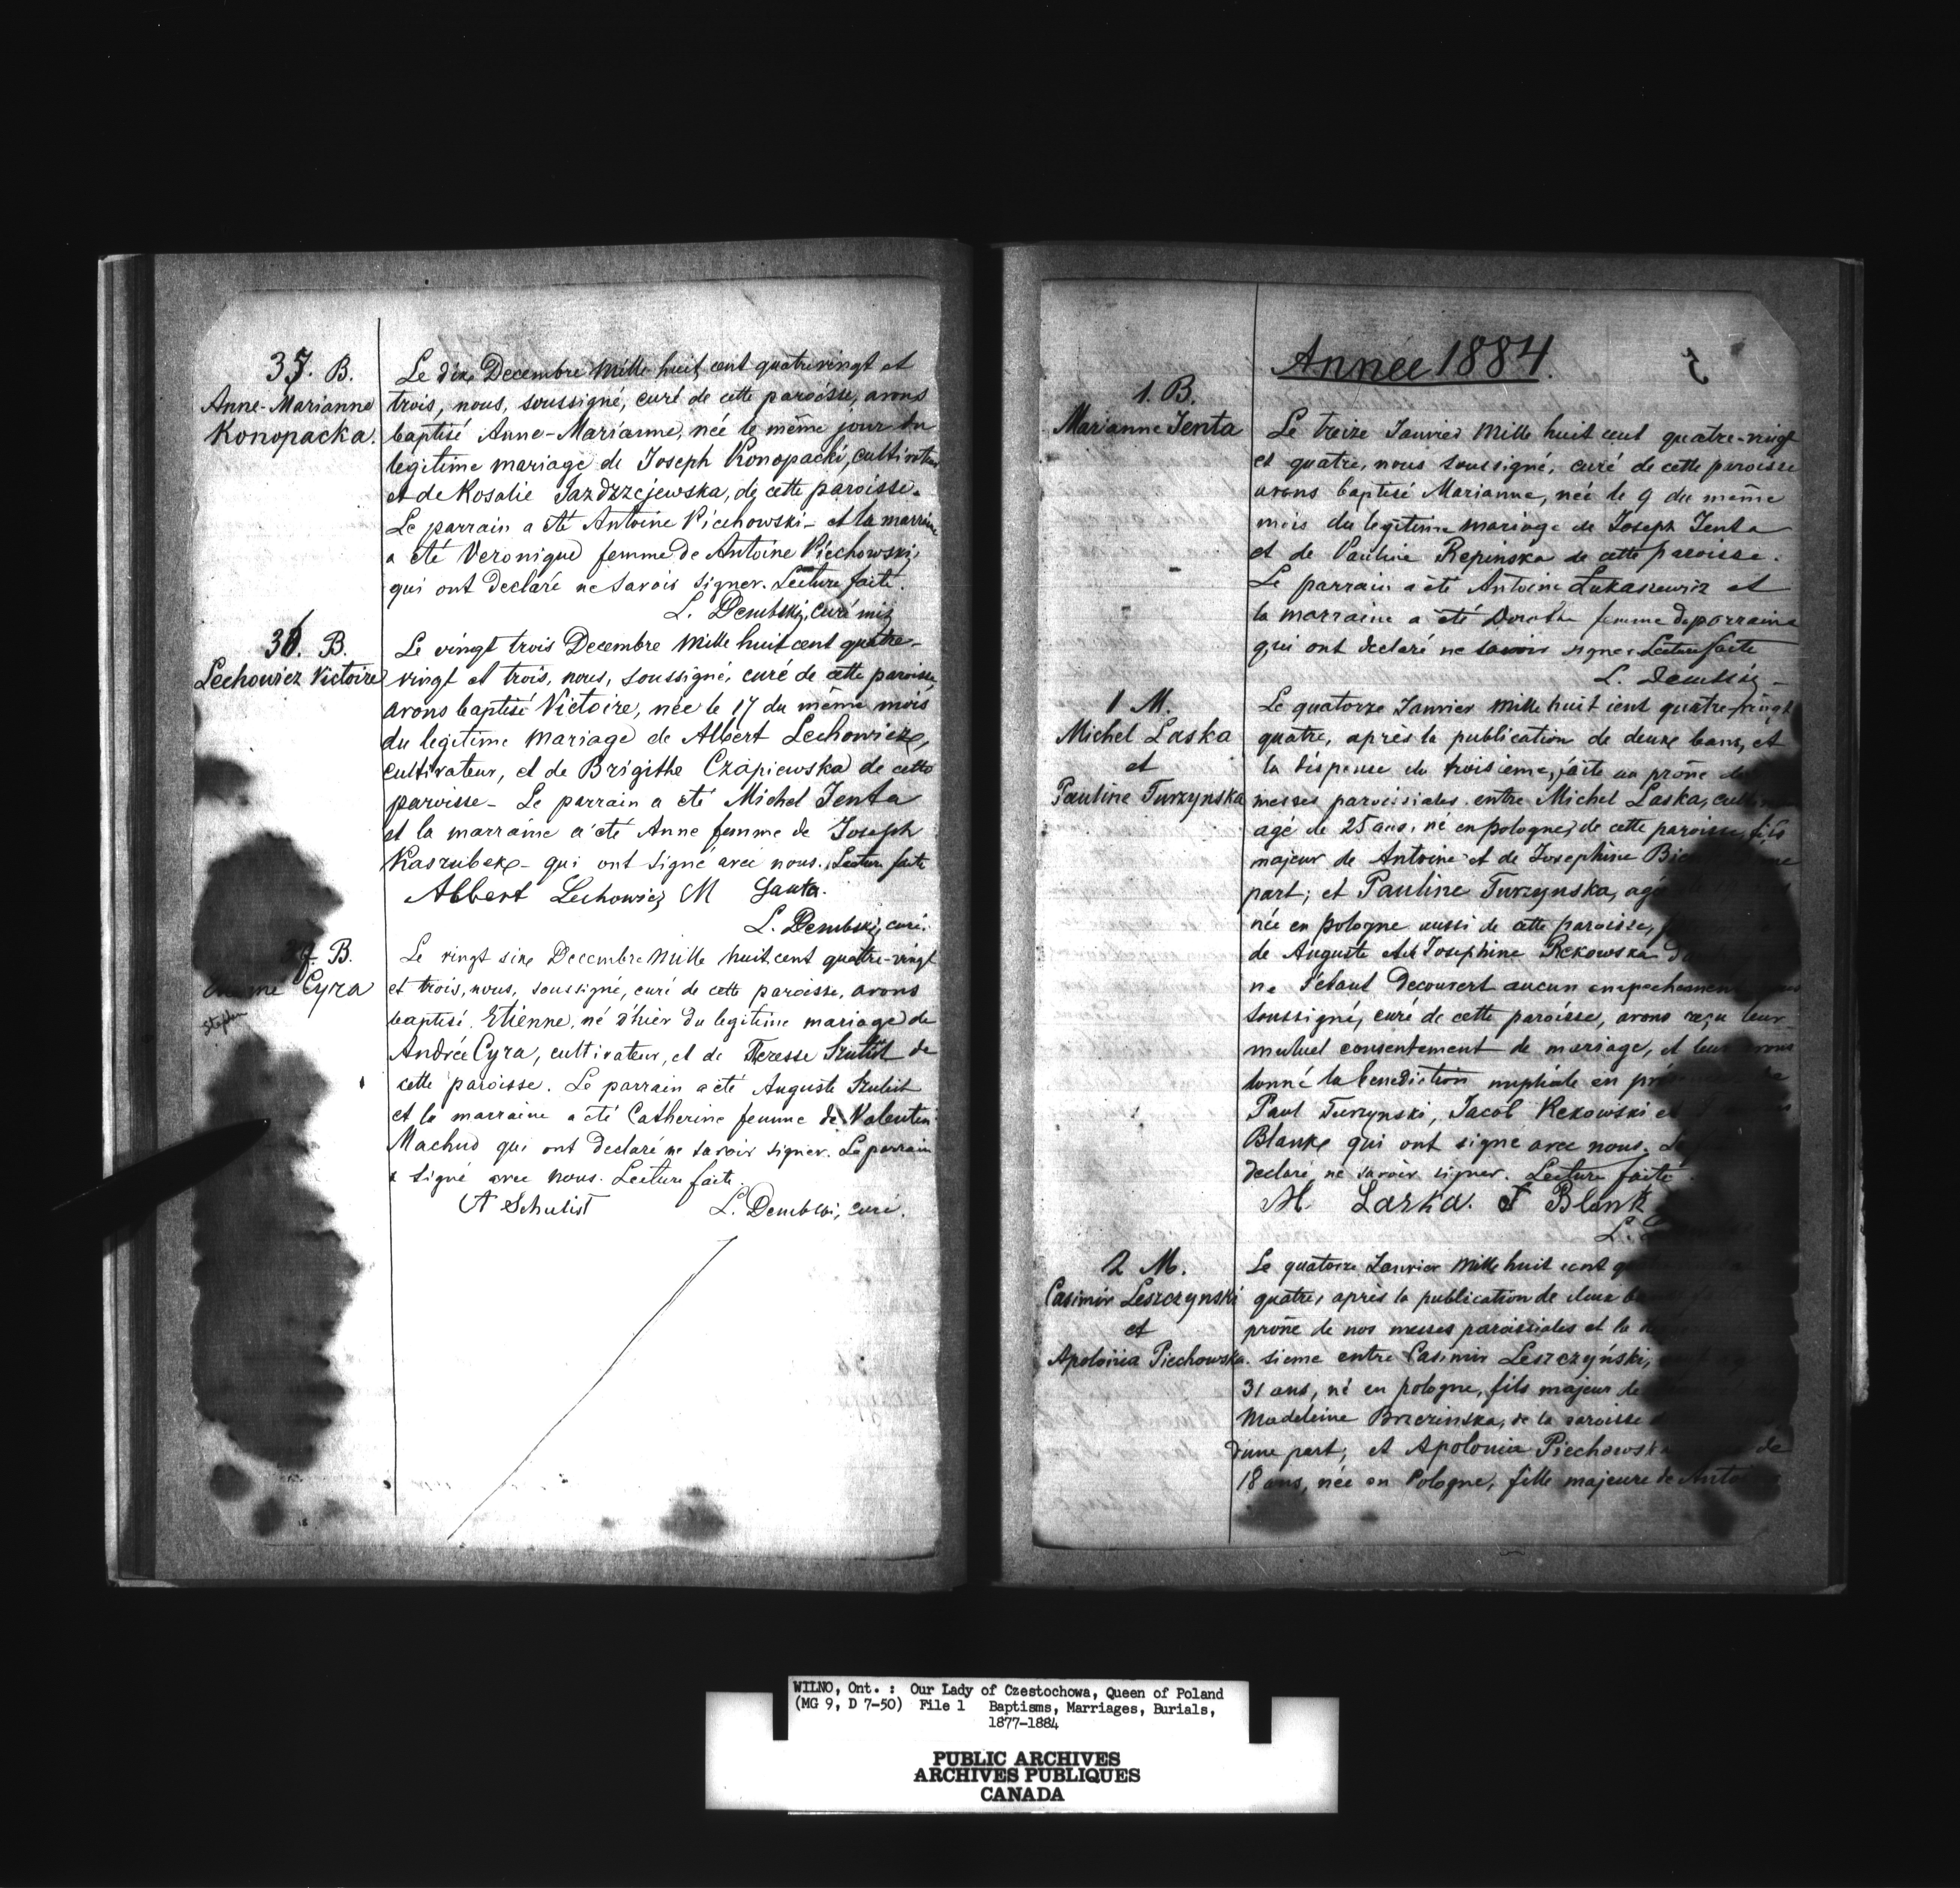 37. B.
Anne-Marianne
Konopacka.
Le dix Decembre mille huit cent quatrevingt et
trois, nous, soussigné, curé de cette paroisse, avons
baptisé Anne-Marianne, née le même jour du
legitime mariage de Joseph Konopacki, cultivateur
et de Rosalie Jazdrzejewska, de cette paroisse.
Le parrain a été Antoine Piechowski - et la marraine
a été Veronique femme de Antoine Piechowski,
qui ont declaré ne savoir signer. Lecture faite.
L. Dembski, curé
36. B.
Lechowicz Victoire
Le vingt trois Decembre mille huit cent quatre-
vingt et trois, nous, soussigné, curé de cette paroisse,
avons baptisé Victoire, née le 17 du même mois
du legitime mariage de Albert Lechowicz,
cultivateur, et de Brigithe Czapiewska de cette
paroisse - Le parrain a été Michel Jenta
et la marraine a été Anne femme de Joseph
Kaszubek - qui ont signé avec nous. Lecture faite
Albert Lechowicz M
L. Dembski, curé.
B.
Cyra
Stephen
Le vingt six Decembre mille huit cent quatre-vingt
et trois, nous, soussigné, curé de cette paroisse, avons
baptisé Etienne, né d'hier du legitime mariage de
André Cyra, cultivateur, et de Teresse Szulist de
cette paroisse. Le parrain a été Auguste Szulist
et la marraine a été Catherine femme de Valentin
Machud qui ont declaré ne savoir signer. Le parrain
a signé avec nous. Lecture faite.
A Schulist L. Dembski, curé.
Année 1884.
5
1. B.
Marianne Jenta
Le treize Janvier mille huit cent quatre-vingt
et quatre, nous soussigné, curé de cette paroisse
avons baptisé Marianne, née le 9 du même
mois du legitime mariage de Joseph Jenta
et de Pauline Repinska de cette paroisse.
Le parrain a été Antoine Lukaszewicz et
la marraine a été Dorothe femme du parraine
qui ont declaré ne savoir signer Lecture faite
L. Dembski -
1 M.
Michel Laska
et
Pauline Turzynska
Le quatorze Janvier mille huit cent quatre-vingt
quatre, après la publication de deux bans, et
la dispense du troisieme, faite au prône des
messes paroissiales entre Michel Laska,
agé de 25 ans, né en pologne, de cette paroisse, fils
majeur de Antoine et de Josephine
part; et Pauline Turzynska,
née en pologne aussi de cette paroisse,
de Auguste et de Josephine Rekowska
ne s'étant decouvert aucun empechement
soussigné, curé de cette paroisse, avons reçu leur
mutuel consentement de mariage, et leur avons
donné la benediction nuptiale en
Paul Turzynski, Jacob Rekowski et
Blank qui ont signé avec nous.
declaré ne savoir signer. Lecture faite.
M. Laska. F Blank
2 M.
Casimir Leszczynski
et
Apolonia Piechowska.
Le quatorze Janvier mille huit cent
quatre, après la publication de deux
prône de nos messes paroissiales et la
sieme entre Casimir Leszczyński,
31 ans, né en pologne, fils majeur de
Madeleine Brzezinska, de la paroisse
d'une part; et Apolonia Piechowska de
18 ans, née en Pologne, fille majeure de Antoine
WILNO, Ont. : Our Lady of Czestochowa, Queen of Poland
(MG 9, D 7-50) File 1 Baptisms, Marriages, Burials,
1877-1884
PUBLIC ARCHIVES
ARCHIVES PUBLIQUES
CANADA